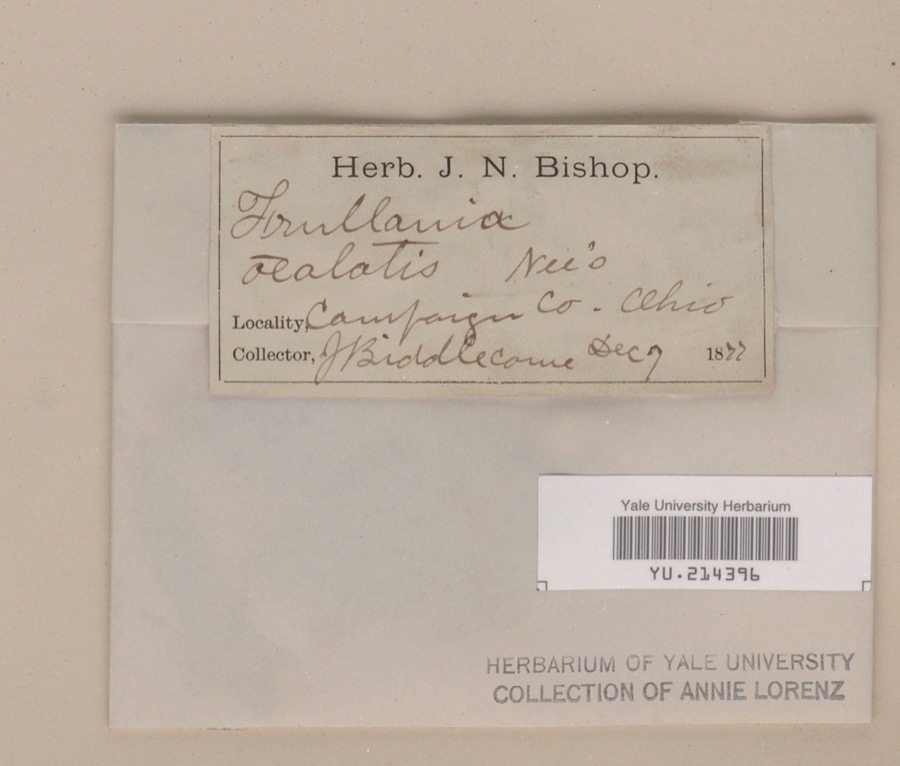 Herb. J. N. Bishop.
Frullania
œolotis Nee's
Locality, Campaign Co. Ohio
Collector, J Biddlecome Dec 7 1877
Yale University Herbarium
YU.214396
HERBARIUM OF YALE UNIVERSITY
COLLECTION OF ANNIE LORENZ